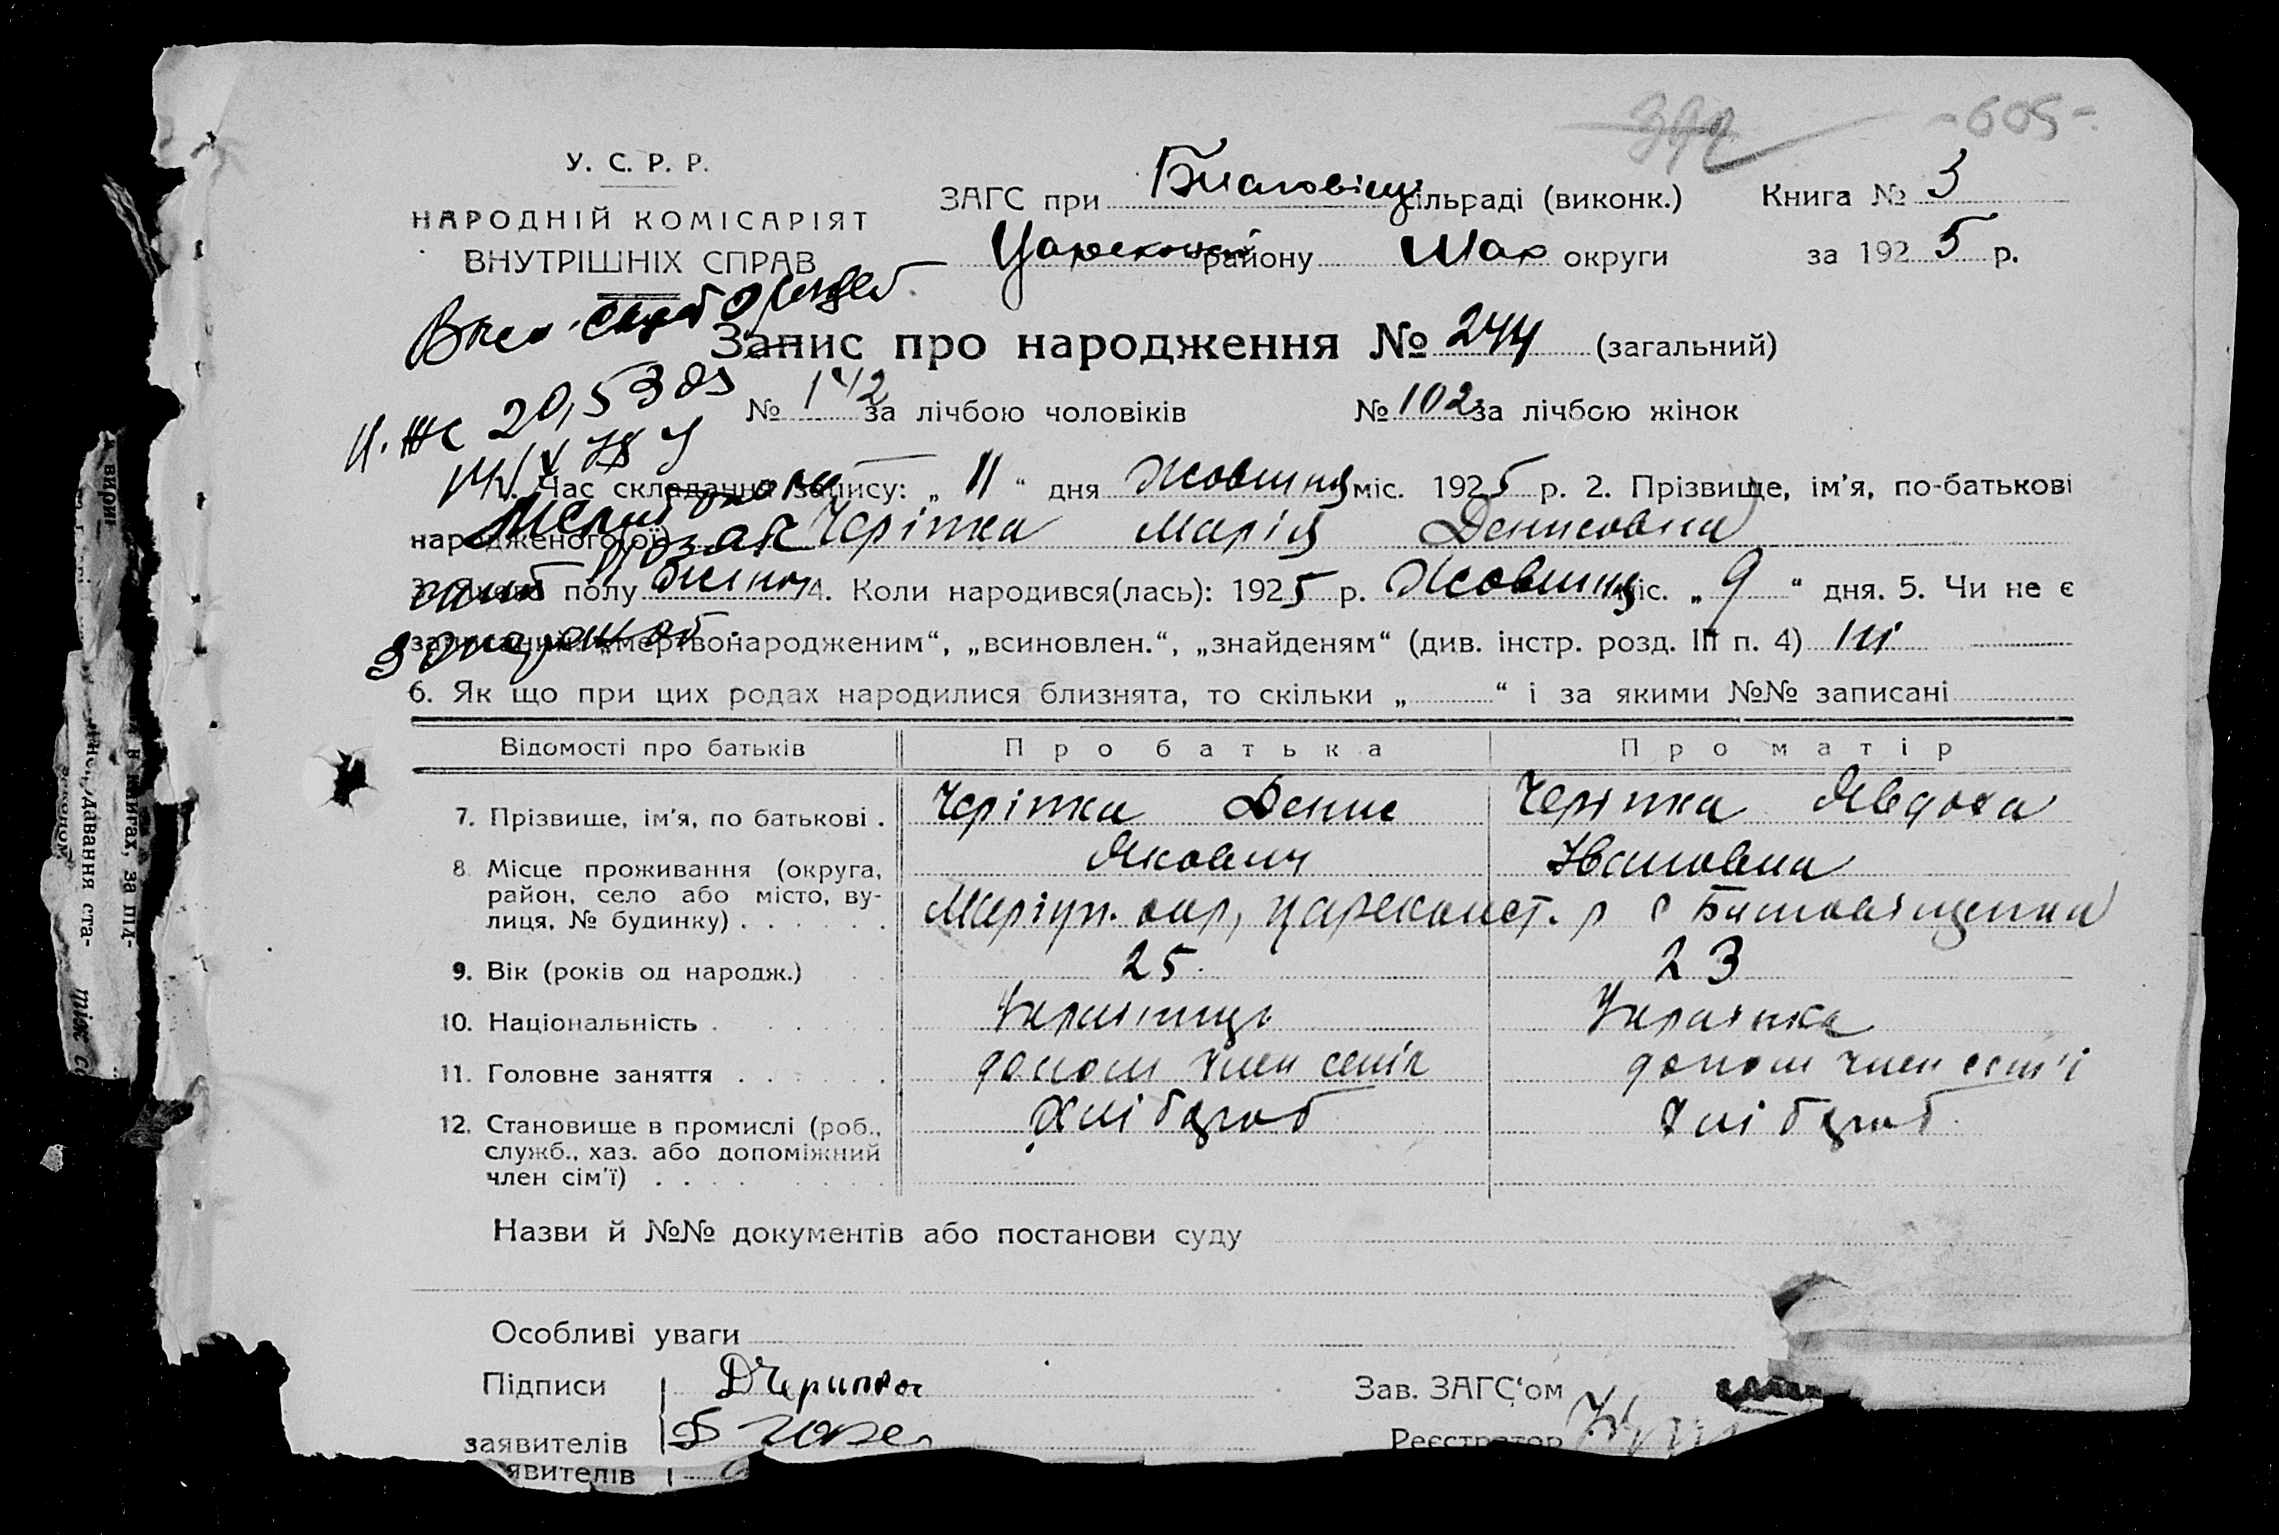 -605-
У. С. Р. Р.
НАРОДНІЙ КОМІСАРІЯТ
ВНУТРІШНІХ СПРАВ
ЗАГС при Благовіщ сільраді (виконк.) Книга № 3
району Мар округи за 1925 р.
Запис про народження № 244 (загальний)
№ 142 за лічбою чоловіків № 102 за лічбою жінок
1. Час складання запису: „ 11 “ дня Жовтня міс. 1925 р. 2. Прізвище, ім’я, по-батькові
народженого(ої) Черіпка Марія Денисовна
полу жіноч 4. Коли народився(лась): 1925 р. Жовтня міс. „ 9 “ дня. 5. Чи не є
записаний: „мертвонародженим“, „всиновлен.“, „знайденям“ (див. інстр. розд. III п. 4) ні
6. Як що при цих родах народилися близнята, то скільки „ “ і за якими №№ записані
Відомості про батьків Про батька Про матір
7. Прізвище, ім’я, по батькові . Черіпка Денис Черіпка Явдоха
Якович Івановна
8. Місце проживання (округа,
район, село або місто, ву-
лиця, № будинку) . . . . . . Маріуп. окр, Цареконст. р с Благовіщенка
9. Вік (років од народж.) 25. 23
10. Національність . Українець Українка
11. Головне заняття . . . . допом член семії допом член сем'ї
12. Становище в промислі (роб., Хлібороб Хлібороб
служб., хаз. або допоміжний
член сім’ї) . . . .
Назви й №№ документів або постанови суду
Особливі уваги
Підписи ДЧерипка Зав. ЗАГС‘ом
заявителів Реєстратор
явителів